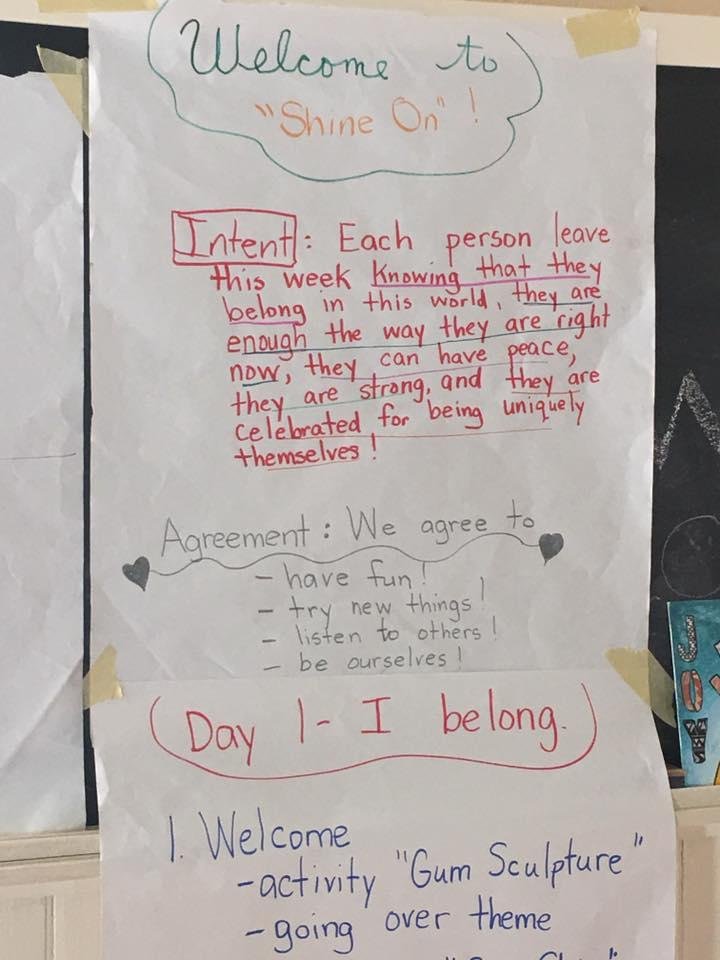 Welcome to
"Shine On"!
Intent: Each person leave
this week knowing that they
belong in this world, they are
enough the way they are right
now, they can have peace,
they are strong, and they are
celebrated for being uniquely
themselves!
Agreement: We agree to
- have fun!
- try new things!
- listen to others!
- be ourselves!
Day 1 - I belong.
1. Welcome
- activity "Gum Sculpture"
- going over theme